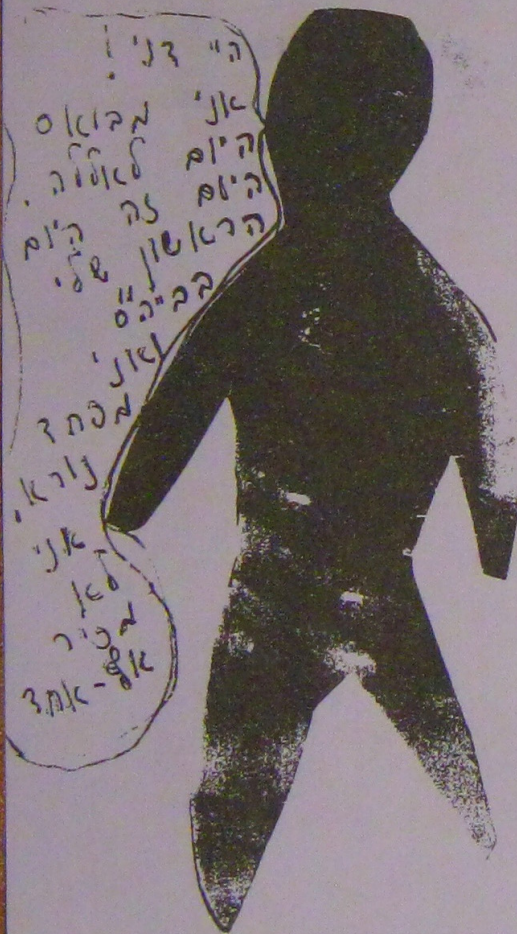 היי דני!
אני מבואס
היום לאללה.
היום זה היום
הראשון שלי
בביה"ס
ואני
מפחד
נורא.
אני
לא
מכיר
אף-אחד